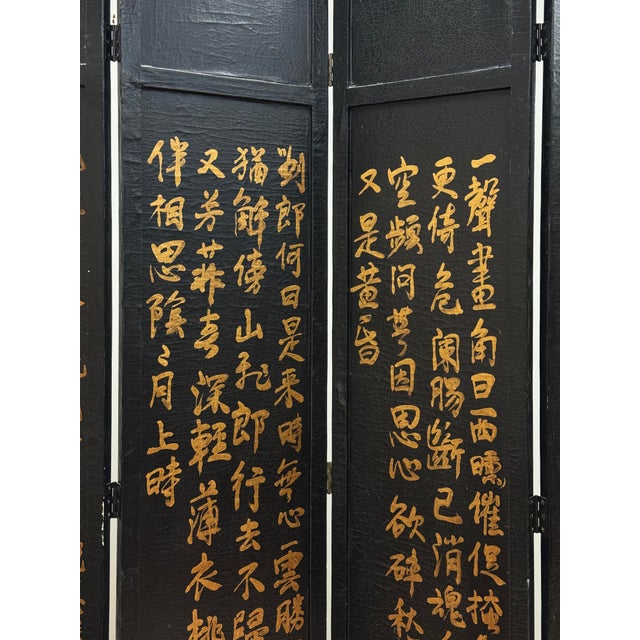 一聲畫角日西曛催促掩
更倚危闌腸斷已消魂
空頻問夢因思心欲碎秋
又是黃昏
劉郎何日是來時無心雲勝
猶解傍山飛郎行去不歸
又芳菲春深輕薄衣桃
伴相思陰〻月上時